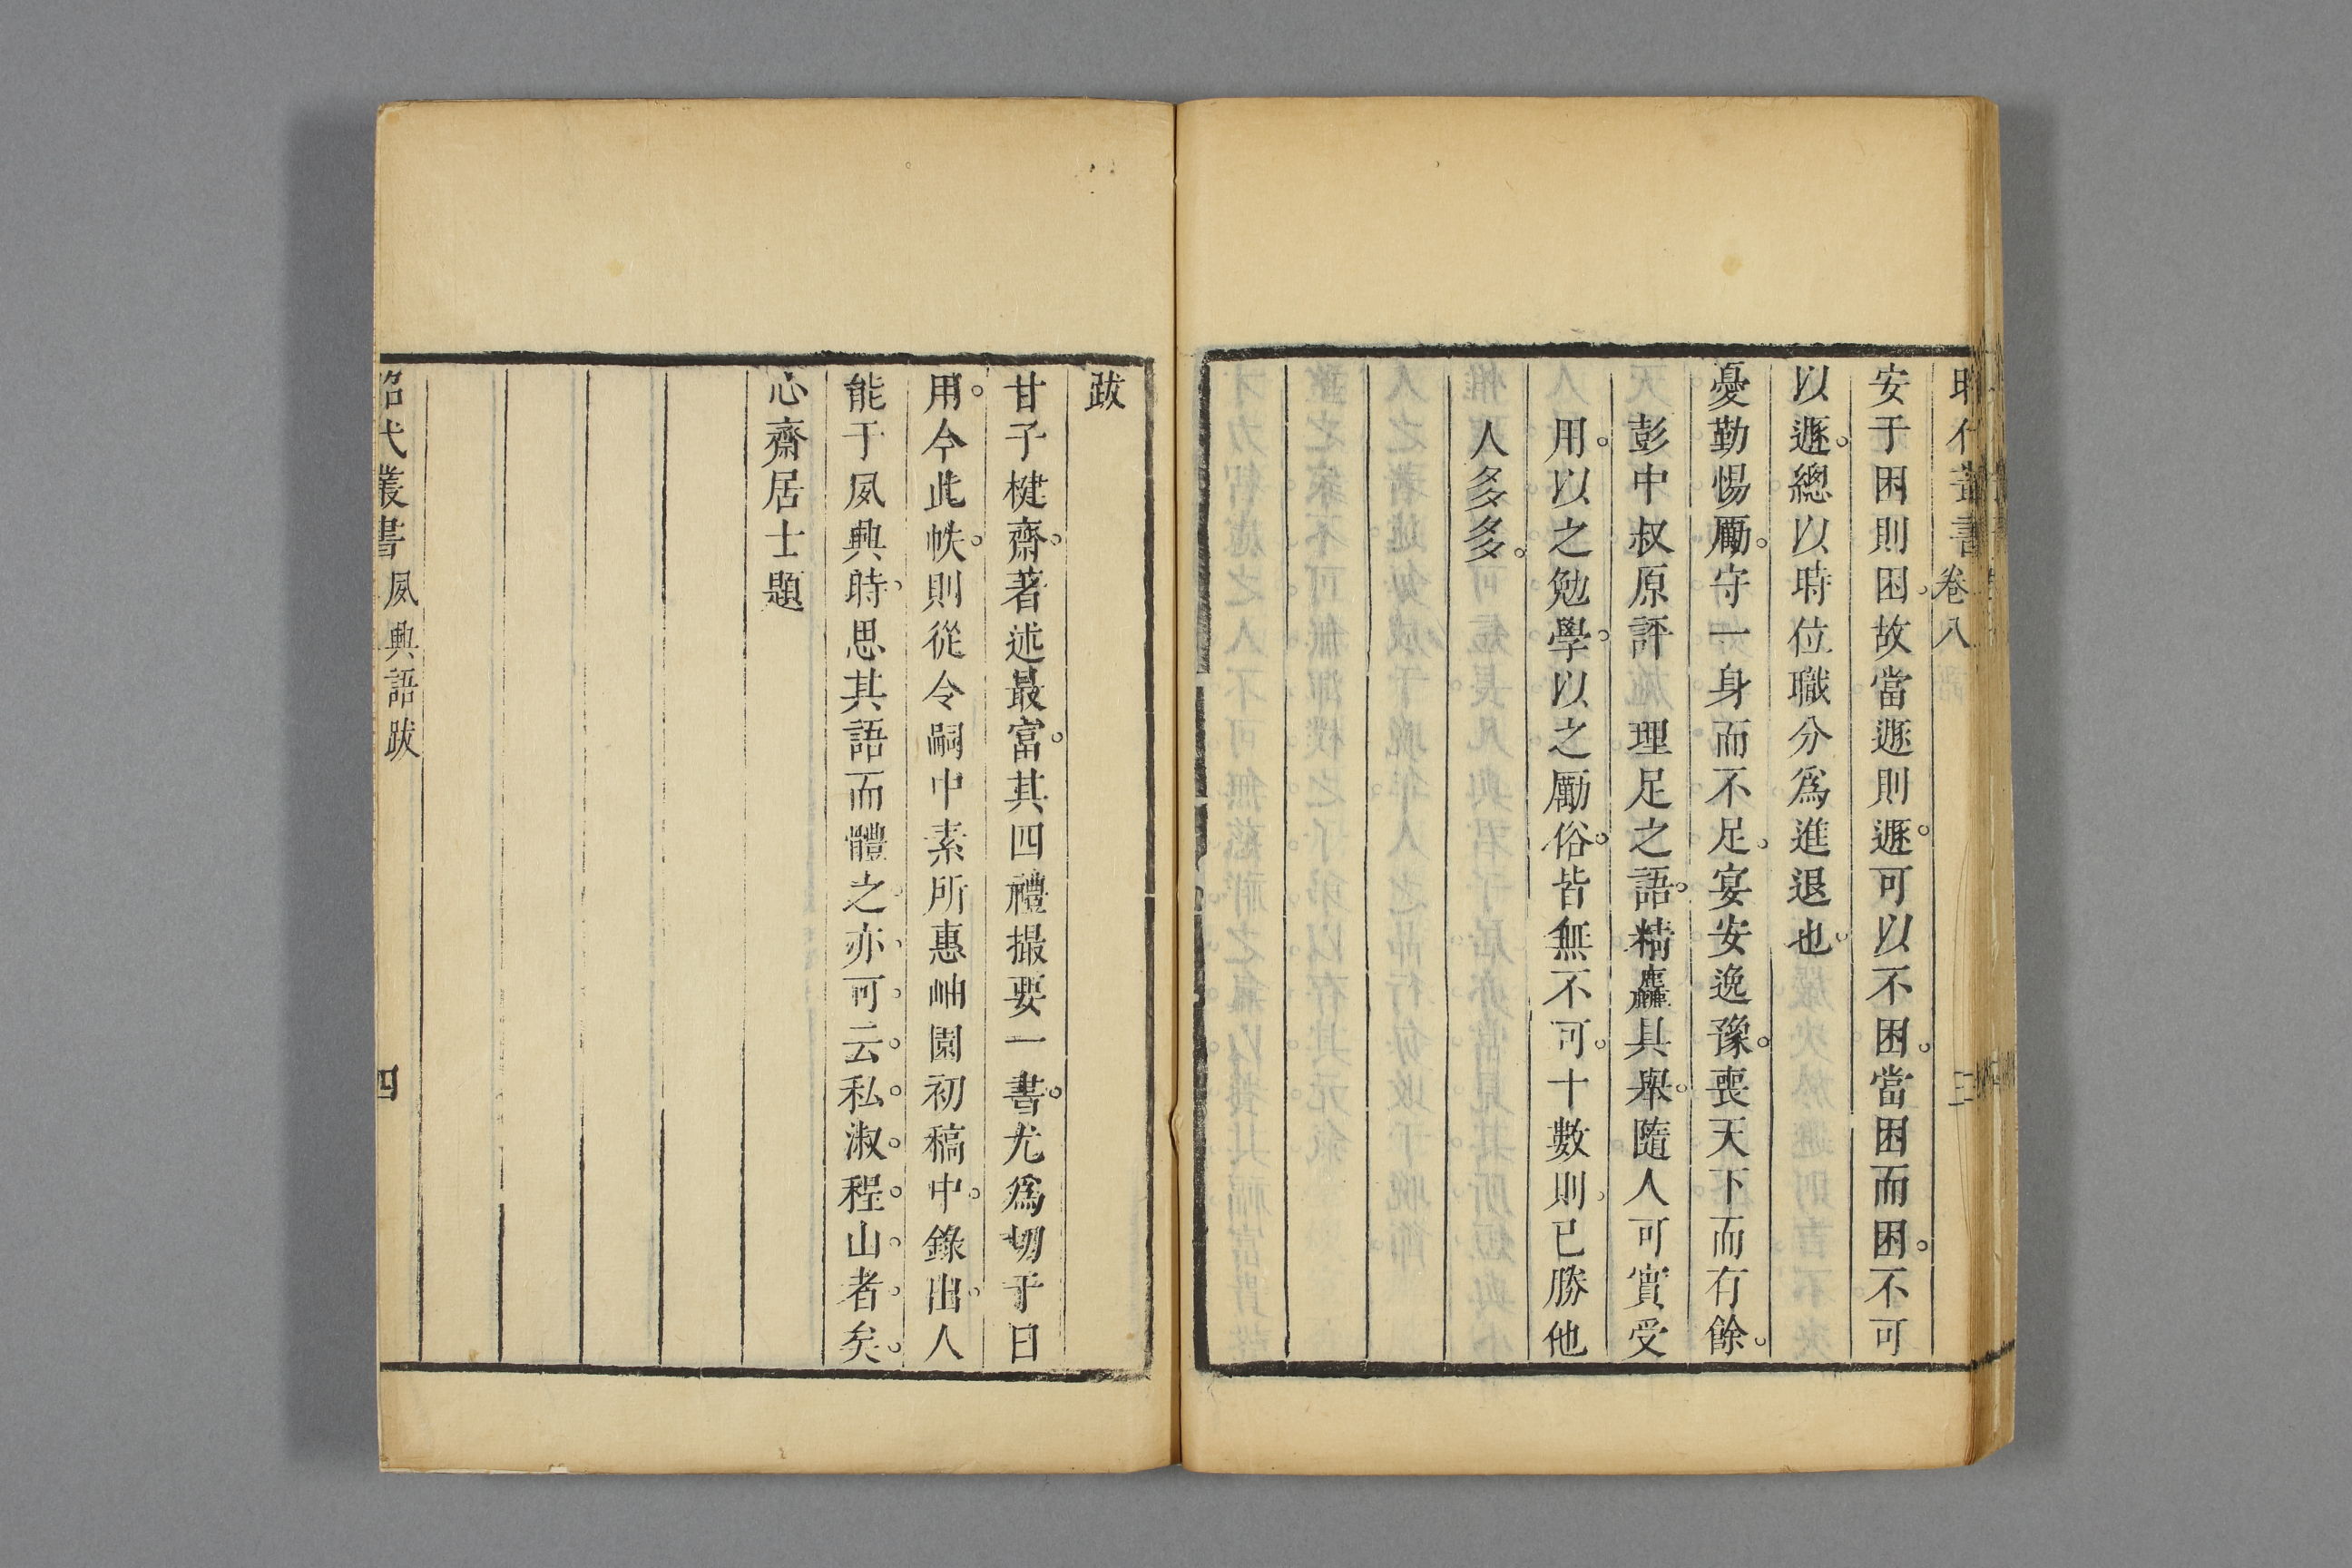 昭代叢書 卷八 三
安于困則困故當遯則遯可以不困當困而困不可
以遯總以時位職分爲進退也
憂勤惕厲守一身而不足宴安逸豫喪天下而有餘
彭中叔原評 理足之語精麤具舉隨人可實受
用以之勉學以之勵俗皆無不可十數則已勝他
人多多
跋
甘子楗齋著述最富其四禮撮要一書尤爲切于日
用今此帙則從令嗣中素所惠岫園初稿中錄出人
能于夙興時思其語而體之亦可云私淑程山者矣
心齋居士題
昭代叢書 夙興語跋 四